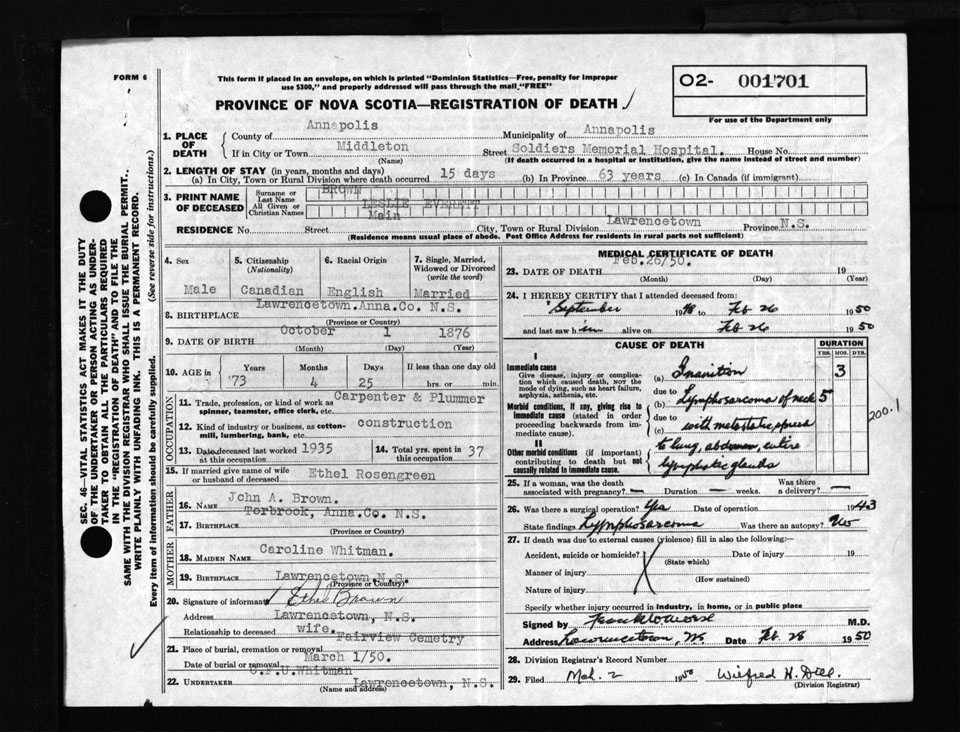 FORM 6
This form if placed in an envelope, on which is printed "Dominion Statistics—Free, penalty for improper
use $300," and properly addressed will pass through the mail "FREE"
PROVINCE OF NOVA SCOTIA—REGISTRATION OF DEATH
O2- 001701
For use of the Department only
SEC. 46—VITAL STATISTICS ACT MAKES IT THE DUTY
OF THE UNDERTAKER OR PERSON ACTING AS UNDER-
TAKER TO OBTAIN ALL THE PARTICULARS REQUIRED
IN THE "REGISTRATION OF DEATH" AND TO FILE THE
SAME WITH THE DIVISION REGISTRAR WHO SHALL ISSUE THE BURIAL PERMIT.
WRITE PLAINLY WITH UNFADING INK. THIS IS A PERMANENT RECORD.
Every item of information should be carefully supplied. (See reverse side for instructions.)
1. PLACE OF DEATH
County of Annapolis Municipality of Annapolis
If in City or Town Middleton Street Soldiers Memorial Hospital. House No.
(Name) (If death occurred in a hospital or institution, give the name instead of street and number)
2. LENGTH OF STAY (in years, months and days)
(a) In City, Town or Rural Division where death occurred 15 days (b) In Province 63 years (c) In Canada (if immigrant)
3. PRINT NAME OF DECEASED
Surname or Last Name BROWN
All Given or Christian Names LESLIE EVERETT
RESIDENCE No. Street Main City, Town or Rural Division Lawrencetown Province N.S.
(Residence means usual place of abode. Post Office Address for residents in rural parts not sufficient)
4. Sex Male
5. Citizenship (Nationality) Canadian
6. Racial Origin English
7. Single, Married, Widowed or Divorced (write the word) Married
8. BIRTHPLACE Lawrencetown.Anna.Co. N.S.
(Province or Country)
9. DATE OF BIRTH October 1 1876
(Month) (Day) (Year)
10. AGE in Years 73 Months 4 Days 25 If less than one day old hrs. or min.
OCCUPATION
11. Trade, profession, or kind of work as spinner, teamster, office clerk, etc. Carpenter & Plummer
12. Kind of industry or business, as cotton-mill, lumbering, bank, etc. construction
13. Date deceased last worked at this occupation 1935
14. Total yrs. spent in this occupation 37
15. If married give name of wife or husband of deceased Ethel Rosengreen
FATHER
16. NAME John A. Brown.
17. BIRTHPLACE Torbrook, Anna.Co. N.S.
(Province or Country)
MOTHER
18. MAIDEN NAME Caroline Whitman.
19. BIRTHPLACE Lawrencetown N.S.
(Province or Country)
20. Signature of informant Ethel Brown
Address Lawrencetown, N.S.
Relationship to deceased wife.
21. Place of burial, cremation or removal Fairview Cemetry
Date of burial or removal March 1/50.
22. UNDERTAKER Whitman Lawrencetown, N.S.
(Name and address)
MEDICAL CERTIFICATE OF DEATH
23. DATE OF DEATH Feb.26/50. 19
(Month) (Day) (Year)
24. I HEREBY CERTIFY that I attended deceased from:
September 1948 to Feb 26 1950
and last saw him alive on Feb 26 1950
CAUSE OF DEATH
DURATION
YRS. MOS. DYS.
I
Immediate cause
Give disease, injury or complication which caused death, NOT the mode of dying, such as heart failure, asphyxia, asthenia, etc.
(a) Inanition 3
due to
Morbid conditions, if any, giving rise to immediate cause (stated in order proceeding backwards from immediate cause).
(b) Lymphosarcoma of neck 5
due to
(c) with metastatic spread
II
Other morbid conditions (if important) contributing to death but not causally related to immediate cause.
to lung, abdomen, entire
lymphatic glands
200.1
25. If a woman, was the death associated with pregnancy? — Duration — weeks. Was there a delivery? —
26. Was there a surgical operation? Yes Date of operation 1943
State findings Lymphosarcoma Was there an autopsy? No
27. If death was due to external causes (violence) fill in also the following:—
Accident, suicide or homicide? Date of injury 19
(State which)
Manner of injury
(How sustained)
Nature of injury
Specify whether injury occurred in industry, in home, or in public place
Signed by M.D.
Address Lawrencetown, NS. Date Feb 28 1950
28. Division Registrar's Record Number
29. Filed Mch. 2 1950 Wilfred H. Dill.
(Division Registrar)